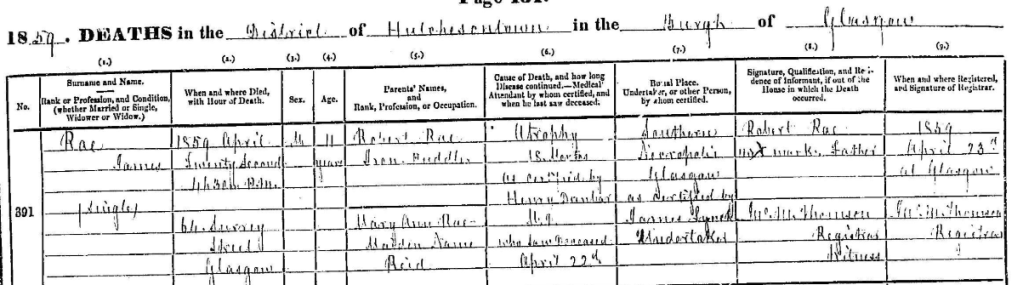 1859. DEATHS in the District of Hutchesontown in the Burgh of Glasgow
(1.) (2.) (3.) (4.) (5.) (6.) (7.) (8.) (9.)
No.
Surname and Name.
Rank or Profession, and Condition,
(whether Married or Single,
Widower or Widow.)
When and where Died,
with Hour of Death.
Sex.
Age.
Parents' Names,
and
Rank, Profession, or Occupation.
Cause of Death, and how long
Disease continued.—Medical
Attendant by whom certified, and
when he last saw deceased.
Burial Place.
Undertaker, or other Person,
by whom certified.
Signature, Qualification, and Resi-
dence of Informant, if out of the
House in which the Death
occurred.
When and where Registered,
and Signature of Registrar.
391
Rae
James
(Single)
1859 April
Twenty Second
4h 30m P.M.
64 Surrey
Street
Glasgow
M
11
years
Robert Rae
Iron Puddler
Mary Ann Rae
Maiden Name
Reid
Atrophy
18 Months
as certified by
Henry Dunbar
who saw deceased
April 22nd
Southern
Necropolis
Glasgow
as certified by
James
Undertaker
Robert Rae
his X mark. Father
Jno. M. Thomson
Registrar
Witness
1859
April 23rd
at Glasgow
Jno. M. Thomson
Registrar